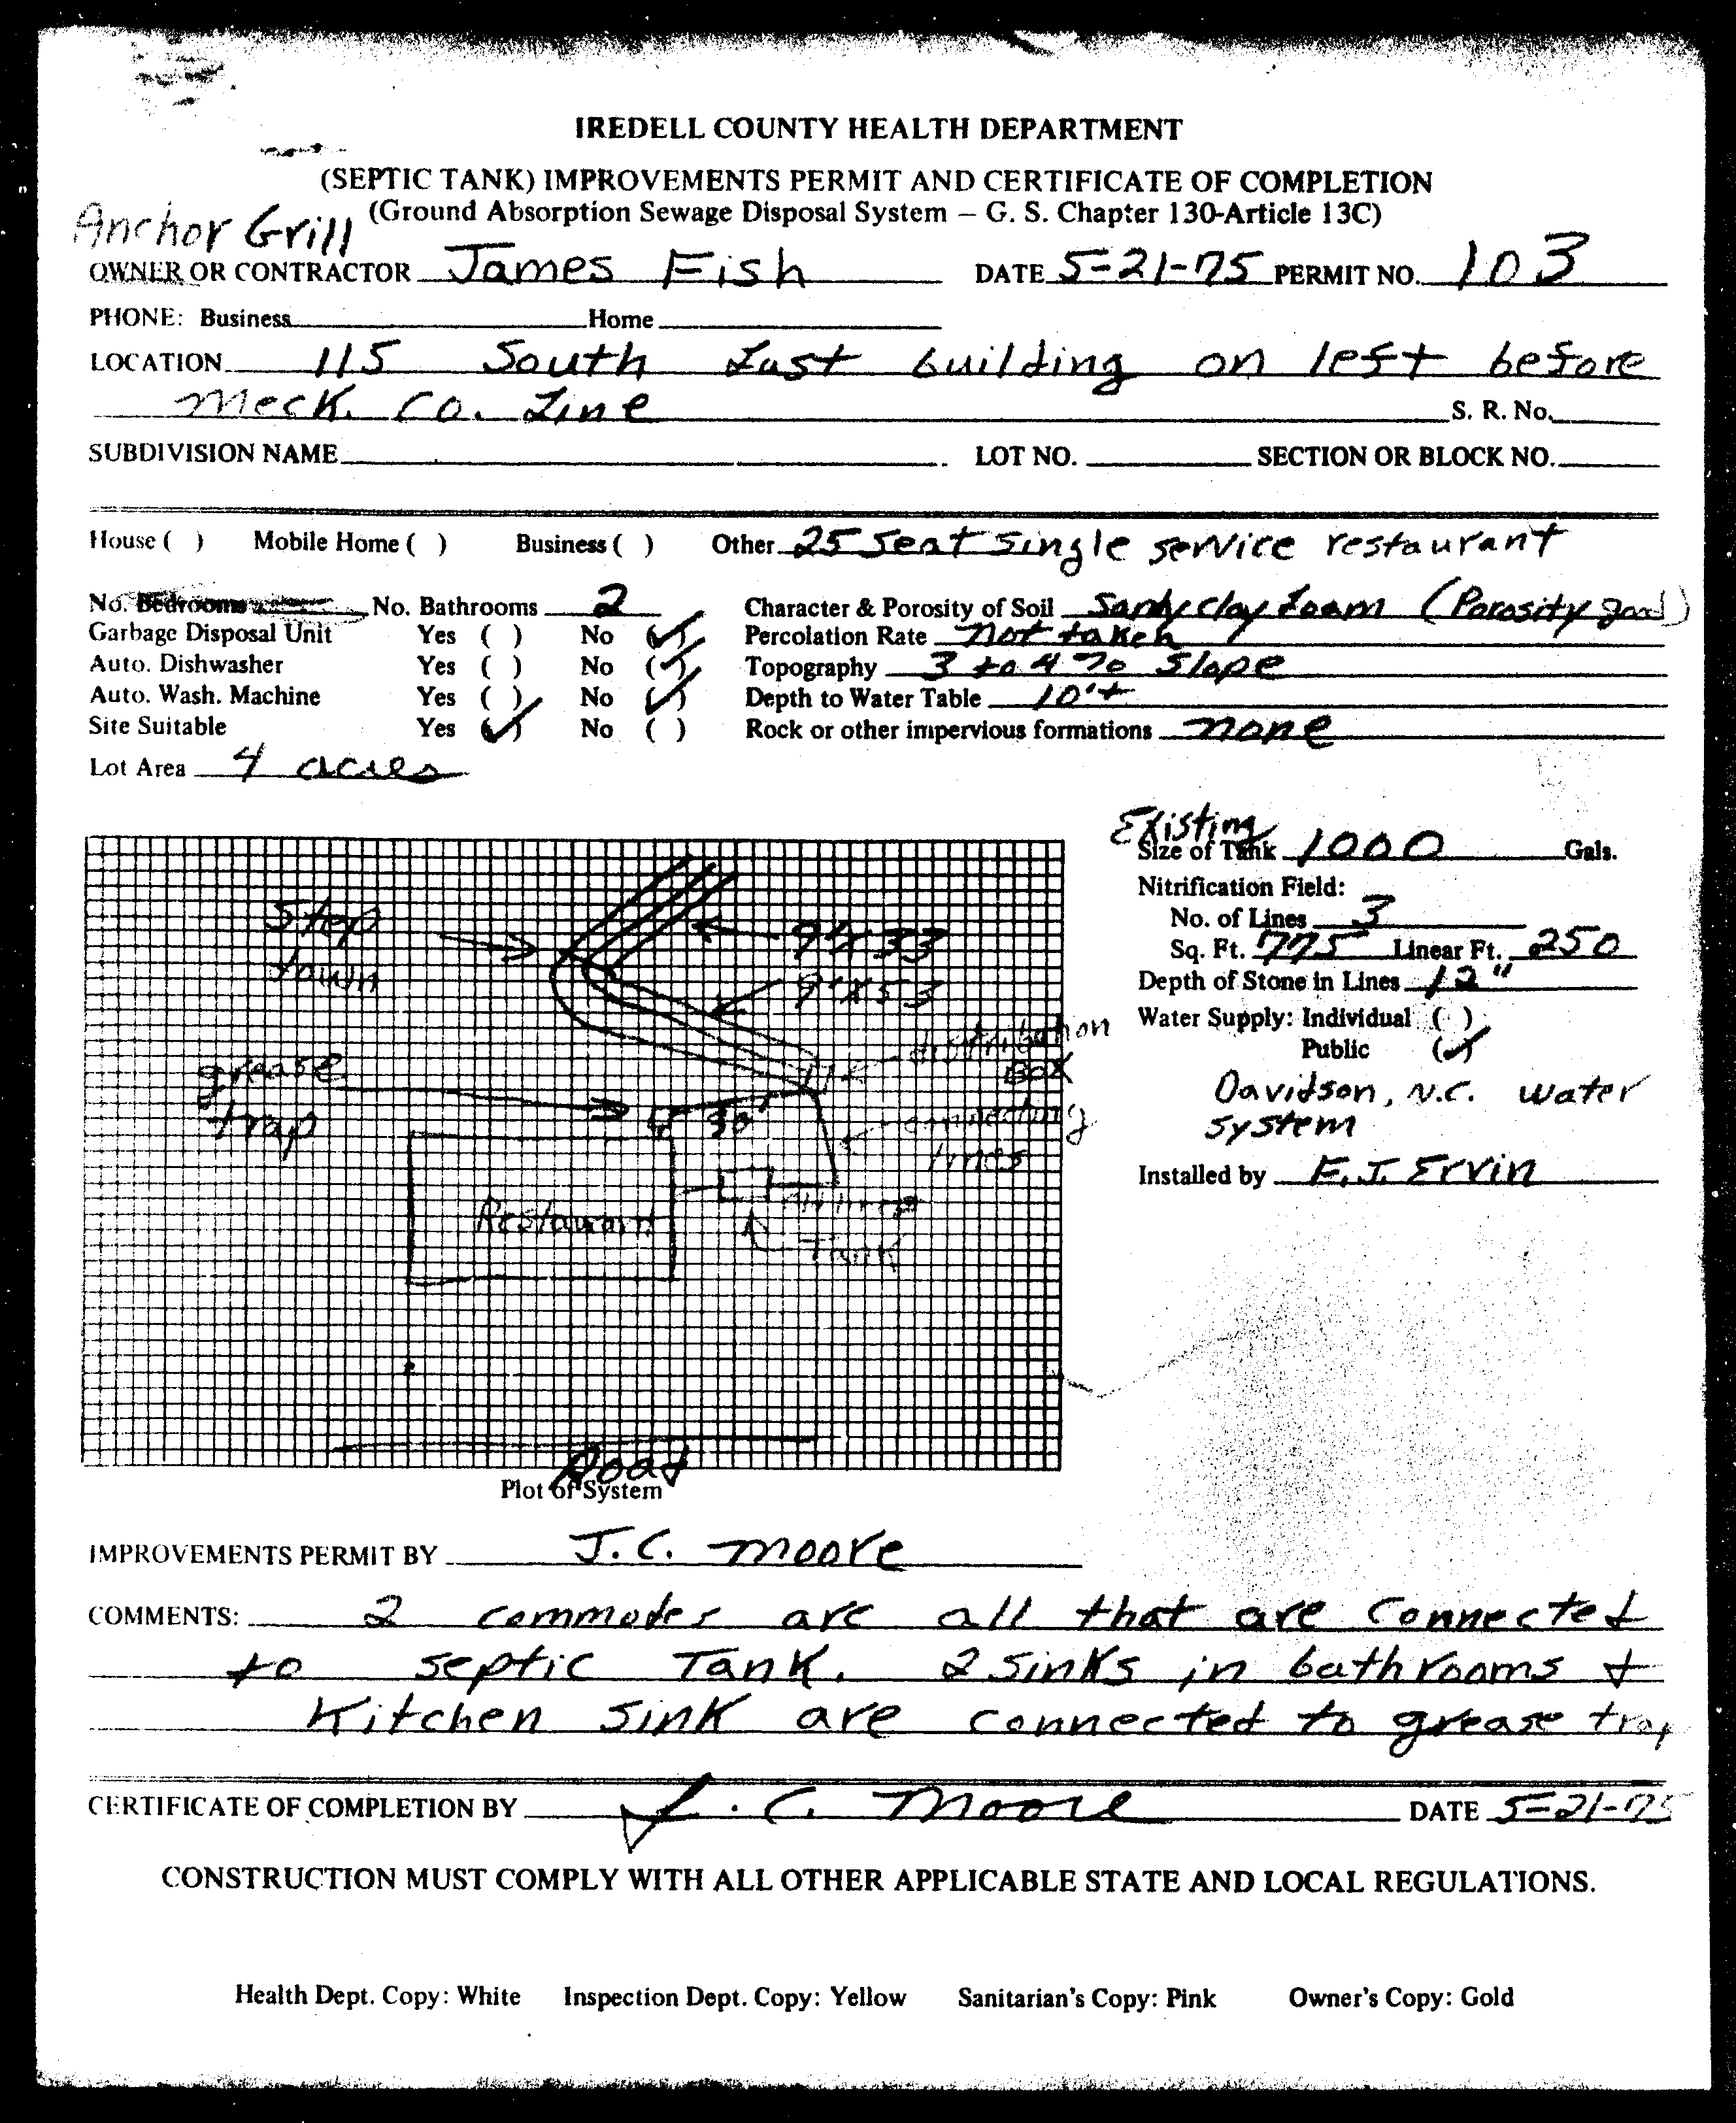 IREDELL COUNTY HEALTH DEPARTMENT
(SEPTIC TANK) IMPROVEMENTS PERMIT AND CERTIFICATE OF COMPLETION
(Ground Absorption Sewage Disposal System — G. S. Chapter 130-Article 13C)
Anchor Grill
OWNER OR CONTRACTOR James Fish DATE 5-21-75 PERMIT NO. 103
PHONE: Business Home
LOCATION 115 South Last building on left before
Meck. Co. Line S. R. No.
SUBDIVISION NAME LOT NO. SECTION OR BLOCK NO.
House ( ) Mobile Home ( ) Business ( ) Other 25 Seat single service restaurant
No. Bedrooms No. Bathrooms 2 Character & Porosity of Soil Sandy clay Loam (Porosity good)
Garbage Disposal Unit Yes ( ) No (✓) Percolation Rate not taken
Auto. Dishwasher Yes ( ) No (✓) Topography 3 to 4 % Slope
Auto. Wash. Machine Yes ( ) No (✓) Depth to Water Table 10'+
Site Suitable Yes (✓) No ( ) Rock or other impervious formations none
Lot Area 4 acres
Existing
Size of Tank 1000 Gals.
Nitrification Field:
No. of Lines 3
Sq. Ft. 775 Linear Ft. 250
Depth of Stone in Lines 12"
Water Supply: Individual ( )
Public (✓)
Davidson, N.C. water
system
Installed by E.J. Ervin
Step
down
33
53
distribution
Box
grease
trap
30'
connecting
lines
Restaurant
Tank
Road
Plot of System
IMPROVEMENTS PERMIT BY J.C. Moore
COMMENTS: 2 commodes are all that are connected
to septic Tank. 2 sinks in bathrooms +
Kitchen sink are connected to grease trap
CERTIFICATE OF COMPLETION BY J. C. Moore DATE 5-21-75
CONSTRUCTION MUST COMPLY WITH ALL OTHER APPLICABLE STATE AND LOCAL REGULATIONS.
Health Dept. Copy: White Inspection Dept. Copy: Yellow Sanitarian's Copy: Pink Owner's Copy: Gold